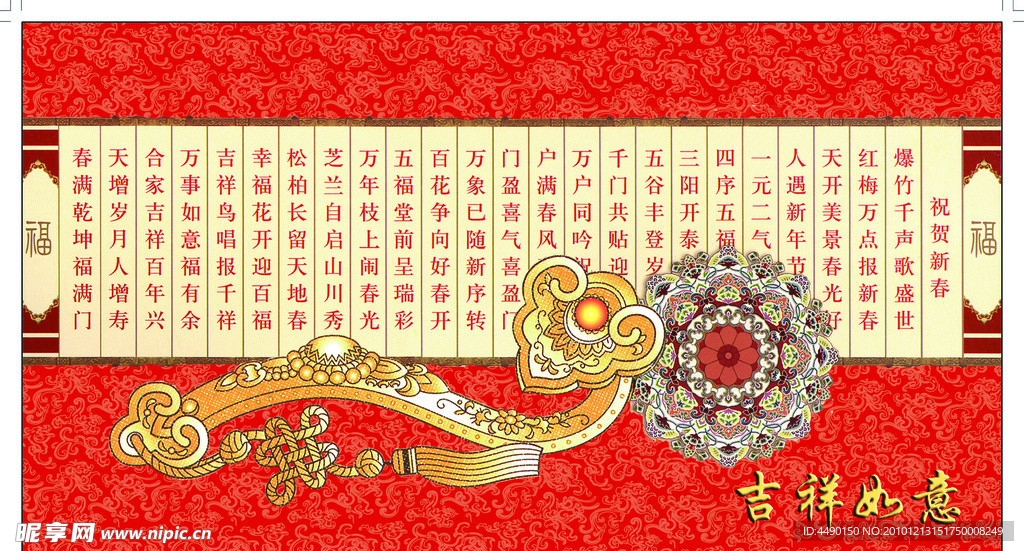 祝贺新春
爆竹千声歌盛世
红梅万点报新春
天开美景春光好
人遇新年节
一元二气
四序五福
三阳开泰
五谷丰登岁
千门共贴迎
万户同吟祝
户满春风
门盈喜气喜盈门
万象已随新序转
百花争向好春开
五福堂前呈瑞彩
万年枝上闹春光
芝兰自启山川秀
松柏长留天地春
幸福花开迎百福
吉祥鸟唱报千祥
万事如意福有余
合家吉祥百年兴
天增岁月人增寿
春满乾坤福满门
福
福
吉祥如意
昵享网 www.nipic.cn
ID:4490150 NO:20101213151750008249